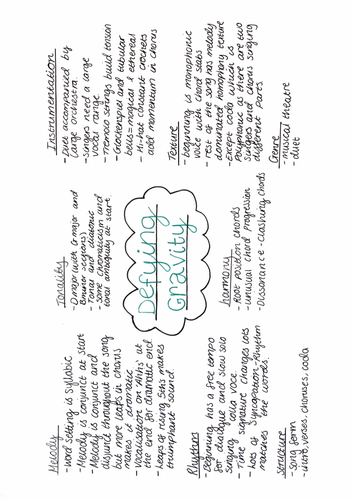 Melody
- Word setting is syllabic
- Melody is conjunct at start
- Melody is conjunct and
disjunct throughout the song
but more leaps in chorus
makes it dramatic
- Vocalisation on 'Ahhs' at
the end for dramatic end
- Leaps of rising 5ths makes
triumphant sound.
Tonality
- D major with G major and
B minor sections
- Tonal and diatonic
- Some chromaticism and
tonal ambiguity at start
Instrumentation
- Duet accompanied by
large orchestra.
- Singers need a large
vocal range
- Tremolo strings build tension
- Glockenspiel and tubular
bells = magical & ethereal
- Hi-Hat constant crotchets
add momentum in chorus
Defying
Gravity
Rhythm
- Beginning has a free tempo
for dialogue and slow solo
singing colla voce.
- Time signature changes lots
- Lots of Syncopation - Rhythm
matches the words.
Structure
- Song form
- intro, verses, choruses, coda
harmony
- Root position chords
- unusual chord progression
- Dissonance - clashing chords
Texture
- beginning is monophonic
voice with chord stabs
- rest of the song has melody
dominated homophony texture
- Except coda which is
Polyphonic as there are two
singers and chorus singing
different parts
Genre
- musical theatre
- duet